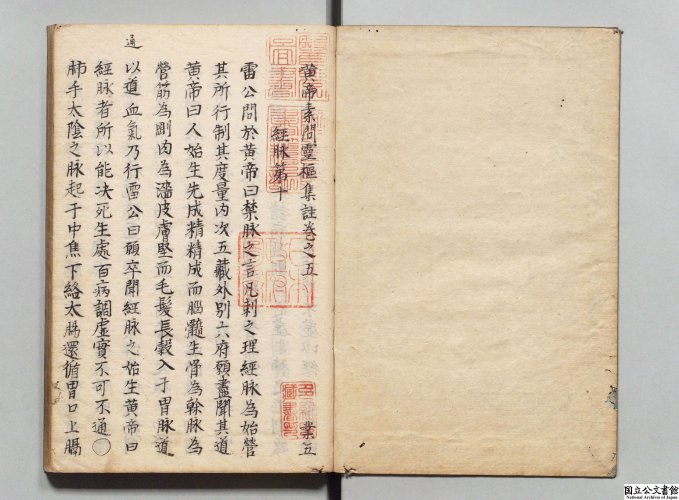 黄帝素問靈樞集註卷之五　業五
經脉第十
雷公問於黄帝曰禁脉之言凡刺之理經脉為始營
其所行制其度量内次五藏外別六府願盡聞其道
黄帝曰人始生先成精精成而腦髓生骨為幹脉為
營筋為剛肉為墻皮膚堅而毛髮長穀入于胃脉道
以道血氣乃行雷公曰願卒聞經脉之始生黄帝曰
通
經脉者所以能决死生處百病調虚實不可不通
肺手太陰之脉起于中焦下絡大膓還循胃口上膈
国立公文書館
National Archives of Japan